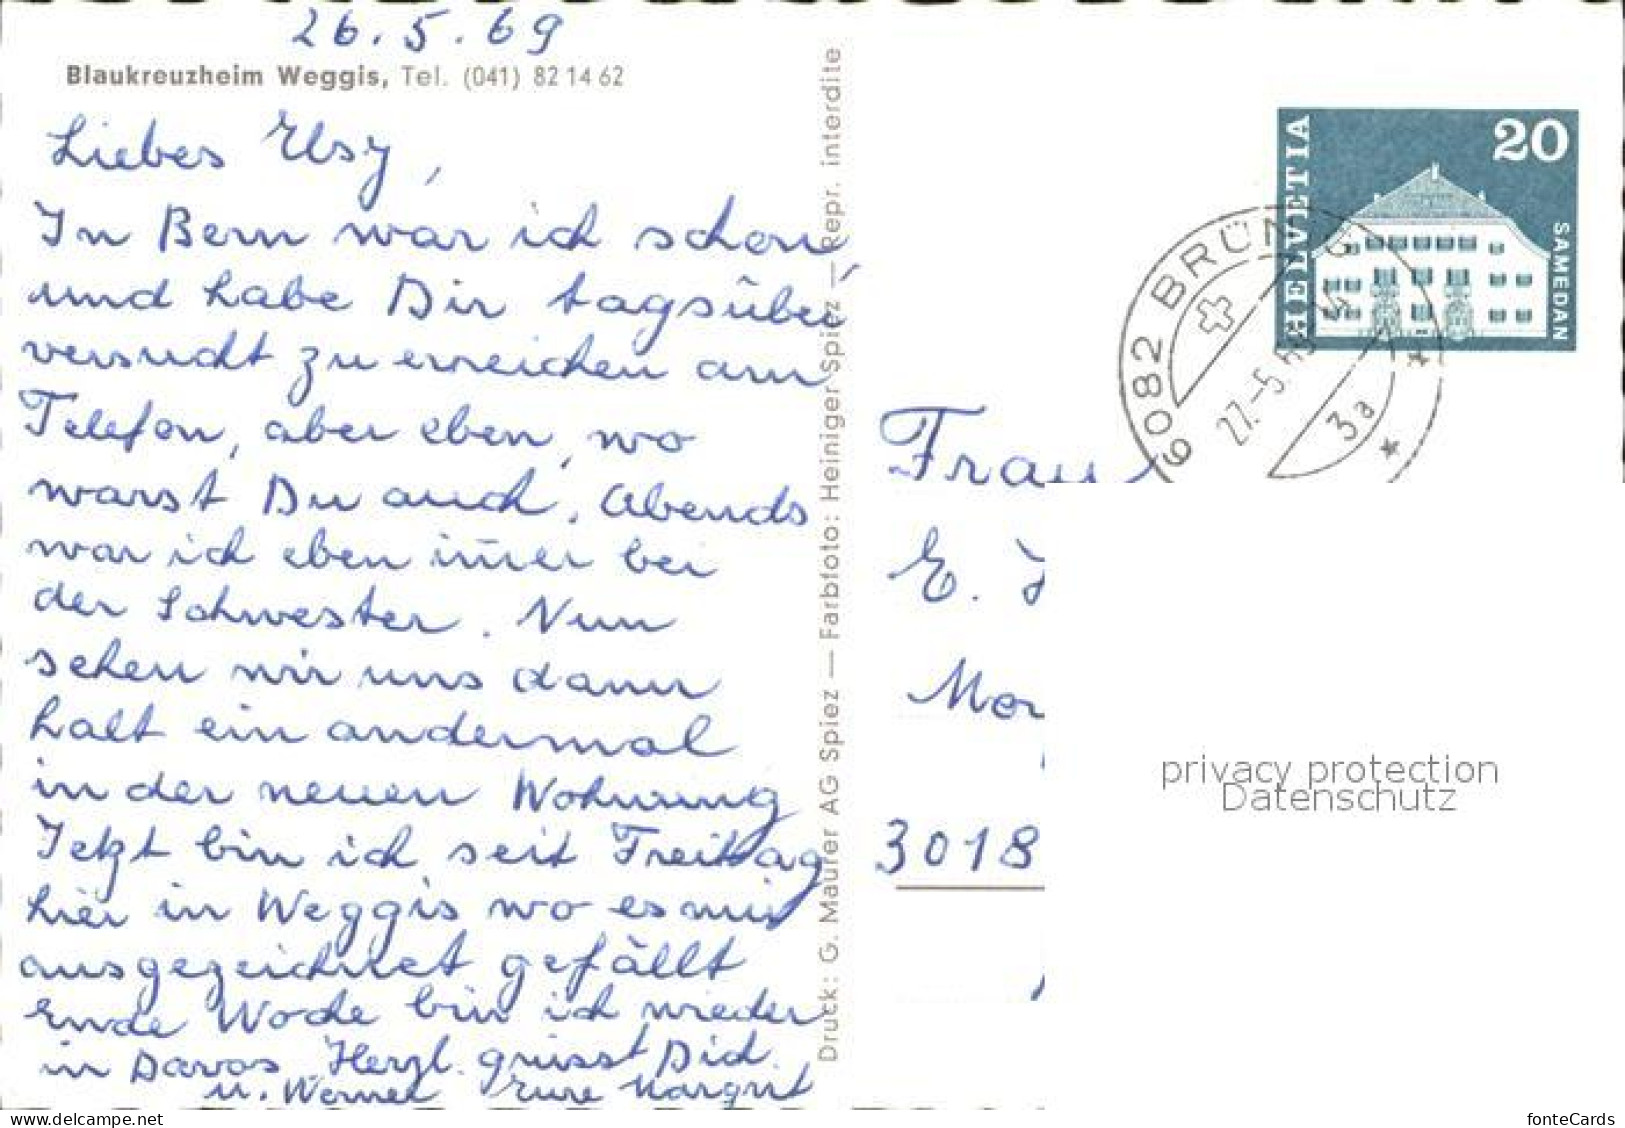 26.5.69
Blaukreuzheim Weggis, Tel. (041) 82 14 62
Liebes Elsy,
In Bern war ich schon,
und habe Dir tagsüber
versucht zu erreichen am
Telefon, aber eben, wo
warst Du auch. Abends
war ich eben im̄er bei
der Schwester. Nun
sehen wir uns dann
halt ein andermal
in der neuen Wohnung
Jetzt bin ich seit Freitag
hier in Weggis wo es mir
ausgezeichnet gefällt
Ende Woche bin ich wieder
in Davos. Herzl. grüsst Dich
u. Werner Eure Margrit
Druck: G. Maurer AG Spiez — Farbfoto: Heiniger Spiez — Repr. interdite
HELVETIA
20
SAMEDAN
6082 BRÜNIG
27.-5.69
3a
Frau
E.
3018
privacy protection
Datenschutz
fonteCards